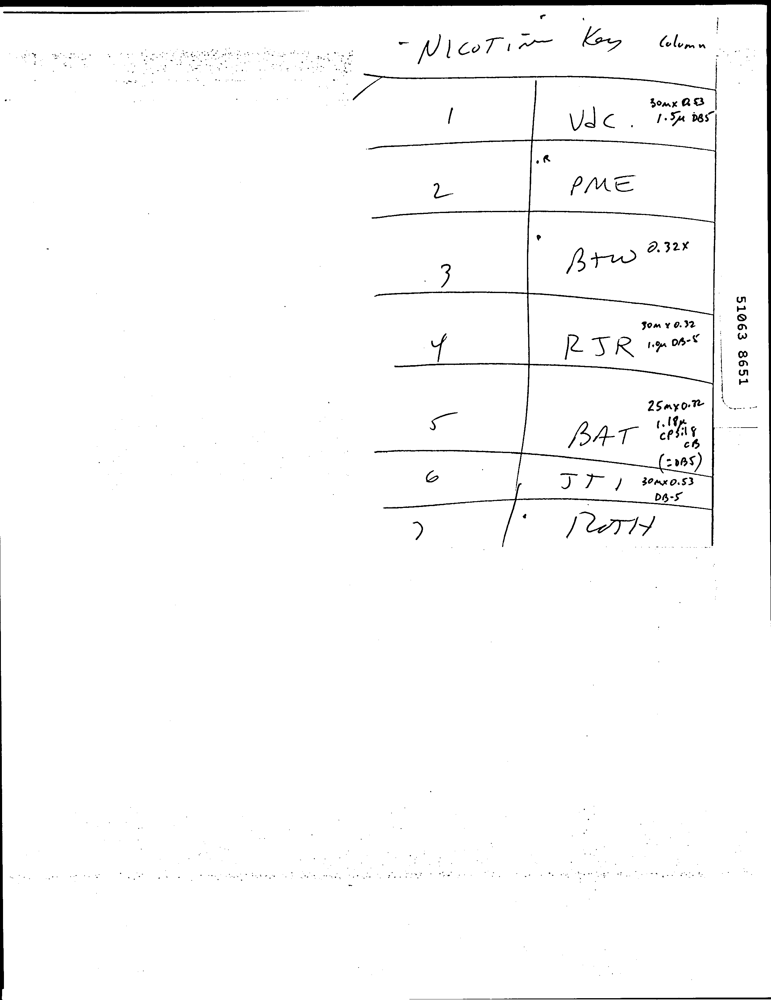 - NICOTINE Key Column
1 VdC. 30m x 0.53
1.5µ DB5
.R
2 PME
3 B+W 0.32x
4 RJR 30m x 0.32
1.0µ DB-5
5 BAT 25m x 0.32
1.18µ
CPSil 8
CB
(=DB5)
6 JTI 30m x 0.53
DB-5
7 ROTH
51063 8651